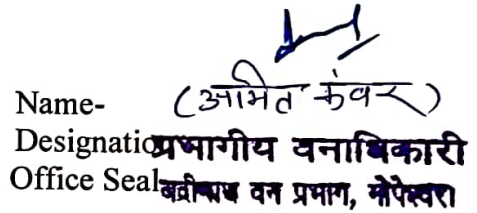 Name- (अमित कंवर)
Designation प्रभागीय वनाधिकारी
Office Seal बद्रीनाथ वन प्रभाग, गोपेश्वर